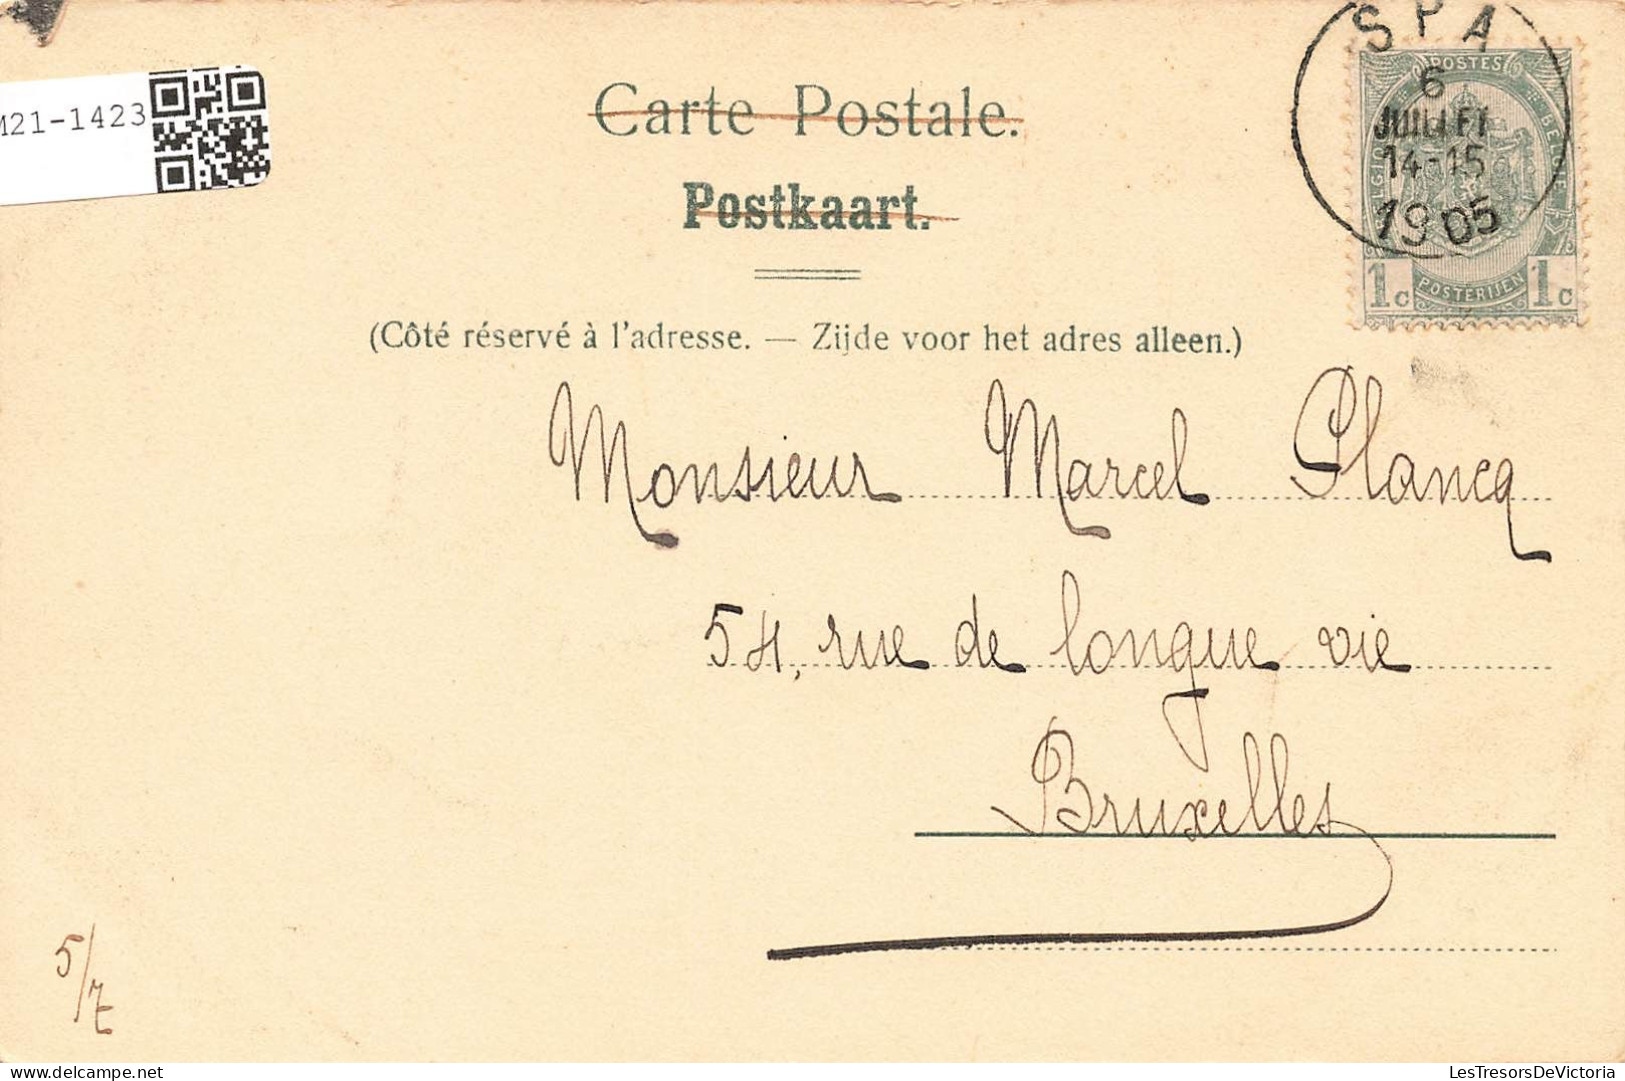 M21-1423
SPA
6
JUILLET
14-15
1905
POSTES
BELGIQUE BELGIE
1c POSTERIJEN 1c
Carte Postale.
Postkaart.
(Côté réservé à l'adresse. — Zijde voor het adres alleen.)
Monsieur Marcel Plancq
54, rue de longue vie
Bruxelles
5/7
LesTresorsDeVictoria